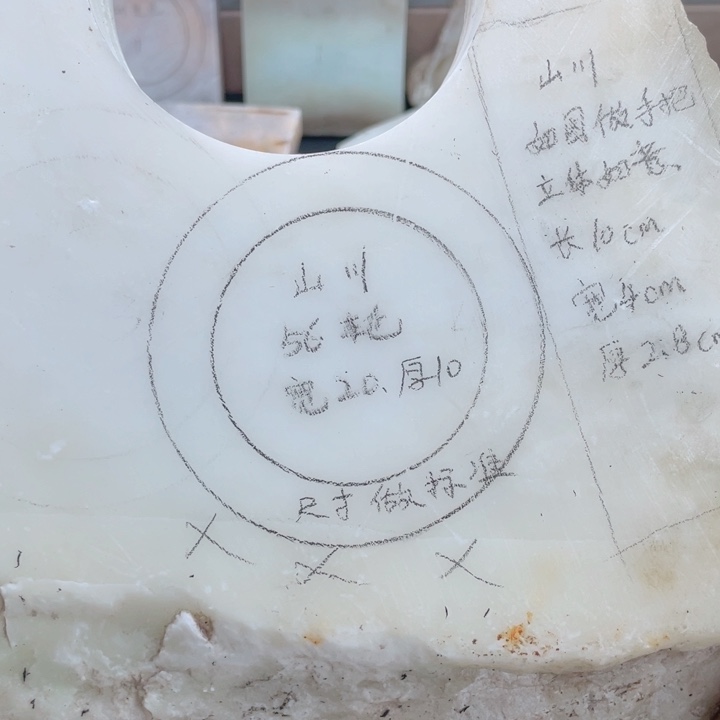 山川
56 
宽20 厚10
尺寸做标准
山川
如图做手把
立体如意
长10cm
宽4cm
厚2.8cm